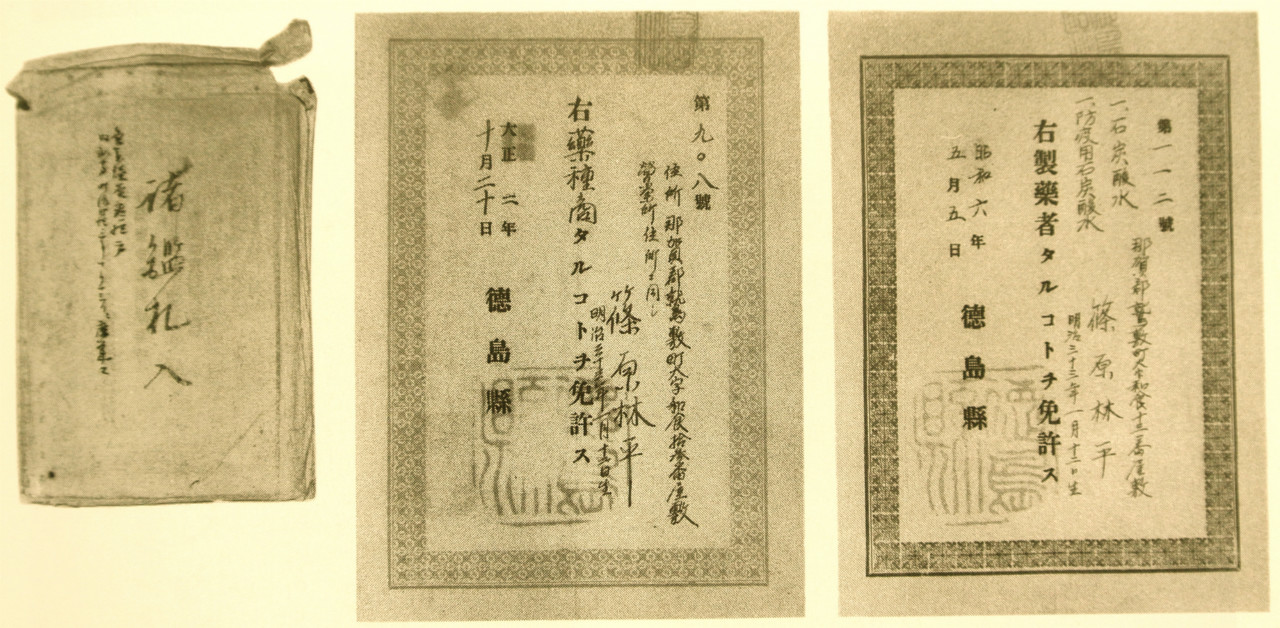 諸鑑札入
第九〇八號
住所 那賀郡鷲敷町大字和食拾参番屋敷
營業所住所ニ同シ
篠原林平
明治三十三年一月十二日生
右藥種商タルコトヲ免許ス
大正 二年
十月二十日
德島縣
第一一二號
一、石炭酸水
一、防疫用石炭酸水
那賀郡鷲敷町大字和食十三番屋敷
篠原林平
明治三十三年一月十二日生
右製藥者タルコトヲ免許ス
昭和六年
五月五日
德島縣